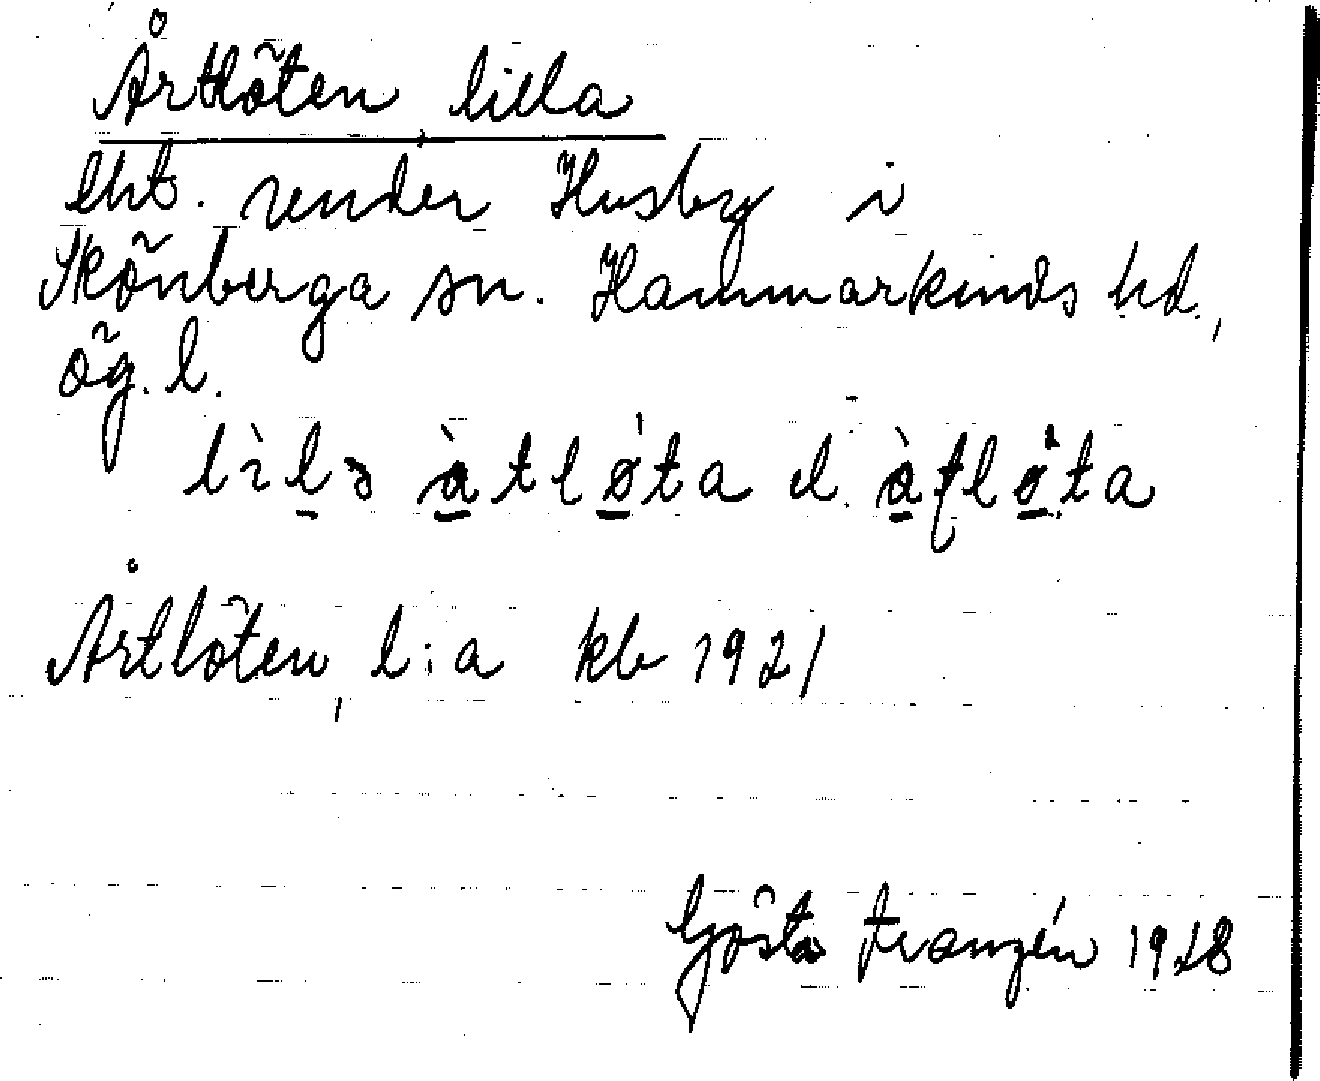 Årtlöten, lilla
lht. under Husby i
Skönberga sn. Hammarkinds hd.,
Ög. l.
lìlə àtlo̍ta el. àʈlo̍ta
Årtlöten, l:a kb 1921
Gösta Franzén 1928